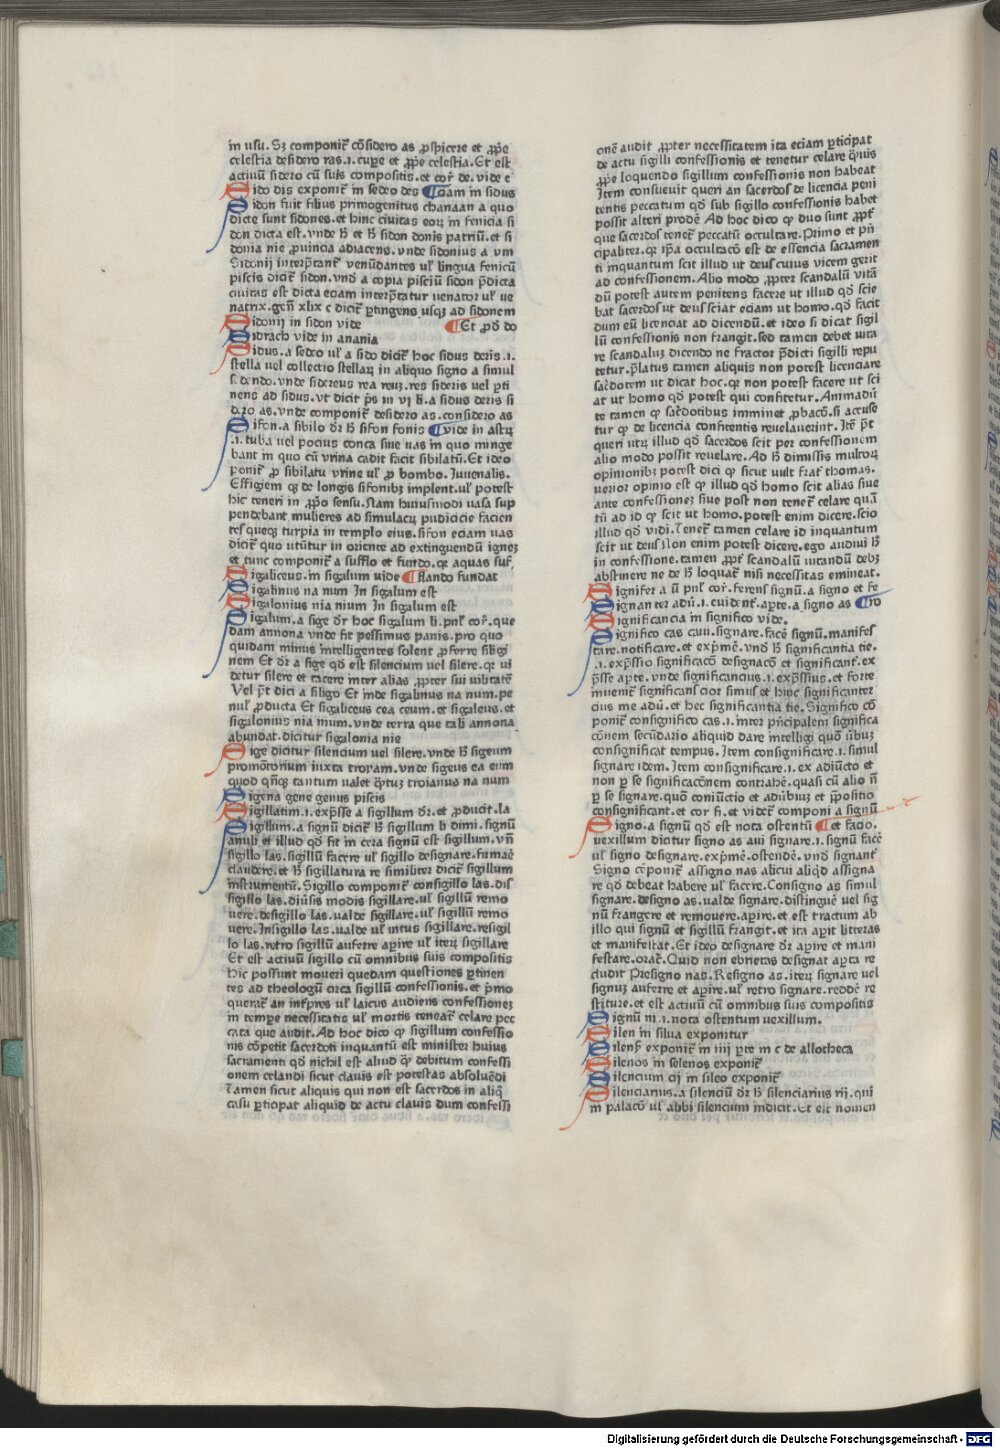 in usu. Sz componit᷑ cōsidero as ꝓspicere et ꝓpͤe
celestia desidero ras .i. cupe et ꝓpͤe celestia. Et est
actiuū sidero cū suis compositis. et cor̄ de. vide ē
Sido dis exponit᷑ in sedeo des ¶ciam in sidus
Sidon fuit filius primogenitus chanaan a quo
dicte sunt sidones. et hinc ciuitas eoꝝ in fenicia si
don dicta est. vnde h̄ et h̄ sidon donis patriū. et si
donia nie ꝓuincia adiacens. vnde sidonius a vm
Sidonij interp̄tant᷑ venūdantes ul̓ lingua fenicū
piscis dicit᷑ sidon. vnd̓ a copia pisciū sidon p̄dicta
ciuitas est dicta eciam interp̄tatur uenator ul̓ ue
natrix. gen̄ xlix c dicit᷑ ꝑtingens usqꝫ ad sidonem
Sidonij in sidon vide ¶Et ꝓd̓ do
Sidrach vide in anania
Sidus. a sedeo ul̓ a sido dicit᷑ hoc sidus deris .i.
stella vel collectio stellaꝝ in aliquo signo a simul
s̄dendo. vnde sidereus rea reuꝫ. res sideris vel ꝑti
nens ad sidus. ut dicit p̄s in vj li. a sidus deris si
d̓ro as. vnde componit᷑ desidero as. considero as
Sifon. a sibilo dr̄ h̄ sifon fonis ¶vide in astꝝ
.i. tuba vel pocius conca siue uas in quo minge
bant in quo cū vrina cadit facit sibilatū. Et ideo
ponit᷑ ꝓ sibilatu vrine ul̓ ꝓ bombo. Iuuenalis.
Effigiem qꝫ de longis sifonibꝫ implent. ul̓ potest
hic teneri in ꝓprͦo sensu. Nam huiusmodi uasa sup
pendebant mulieres ad simulacꝝ pudicicie facien
tes queqꝫ turpia in templo eius. sifon eciam uas
dicit᷑ quo utūtur in oriente ad extinguendū ignez
et tunc componit᷑ a sufflo et fundo. qꝛ aquas suf
Sigaliceus. in sigalum uide ¶flando fundat
Sigalinus na num In sigalum est
Sigalonius nia nium In sigalum est
Sigalum. a sige dr̄ hoc sigalum li. pnl̓ cor̄. que
dam annona vnde fit pessimus panis. pro quo
quidam minus intelligentes solent ꝓferre siligi
nem Et dr̄ a sige qd̓ est silencium vel silere. qꝛ ui
detur silere et tacere inter alias ꝓpter sui uilitatē
Vel pt̄ dici a siligo Et inde sigalinus na num. pe
nul̓ ꝓducta Et sigaliceus cea ceum. et sigaleus. et
sigalonius nia nium. vnde terra que tali annona
abundat. dicitur sigalonia nie
Sige dicitur silencium vel silere. vnde h̄ sigeum
promōtorium iuxta troyam. vnde sigeus ea eum
quod qn̄qꝫ tantum ualet qͣtuꝫ troianus na num
Sigena gene genus piscis
Sigillatim .i. exp̄sse a sigillum dr̄. et ꝓducit. la
Sigillum. a signū dicit᷑ h̄ sigillum li dimi. signū
anuli et illud qd̓ fit in cera signū est sigillum. vn̄
sigillo las. sigillū facere ul̓ sigillo designare. firmaē
claudere. et h̄ sigillatura re similiter dicit᷑ sigillum
instrumentū. Sigillo componit᷑ consigillo las. dis
sigillo las. diūsis modis sigillare. ul̓ sigillū remo
uere. desigillo las. ualde sigillare. ul̓ sigillū remo
uere. Insigillo las. ualde ul̓ intus sigillare. resigil
lo las. retro sigillū auferre aꝑire ul̓ iteꝝ sigillare
Et est actiuū sigillo cū omnibus suis compositis
Hic possunt moueri quedam questiones ꝑtinen
tes ad theologū circa sigillū confessionis. et pͥmo
querat᷑ an inf̄pres ul̓ laicus audiens confessionez
in tempe necessitatis ul̓ mortis teneat᷑ celare pec
cata que audit. Ad hoc dico ꝙ sigillum confessio
nis cōpetit sacerdoti inquantū est minister huius
sacramenti qd̓ nichil est aliud qͣꝫ debitum confessi
onem celandi sicut clauis est potestas absoluēdi
Tamen sicut aliquis qui non est sacerdos in aliqͦ
casu ꝑticipat aliquid de actu clauis dum confessi
onē audit ꝓpter necessitatem ita eciam ꝑticipat
de actu sigilli confessionis et tenetur celare qͣuis
ꝓpͤe loquendo sigillum confessionis non habeat
Item consueuit queri an sacerdos de licencia peni
tentis peccatum qd̓ sub sigillo confessionis habet
possit alteri prodē̓ Ad hoc dico ꝙ duo sunt ꝓpt᷑
que sacerdos tenet᷑ peccatū occultare. Primo et pͥn
cipaliter. qꝛ ip̄a occultacō est de essencia sacramen
ti inquantum scit illud ut deus cuius vicem gerit
ad confessionem. Alio modo ꝓpter scandalū vitā
dū potest autem penitens facere ut illud qd̓ scie
bat sacerdos ut deus sciat eciam ut homo. qd̓ facit
dum eū licenciat ad dicendū. et ideo si dicat sigil
lū confessionis non frangit. sed tamen debet uita
re scandaluꝫ dicendo ne fractor p̄dicti sigilli repu
tetur. p̄latus tamen aliquis non potest licenciare
sac̄dotem ut dicat hoc. qꝛ non potest facere ut sci
at ut homo qd̓ potest qui confitetur. Animadū
te tamen ꝙ sac̄dotibus imminet ꝓbacō. si accuse
tur ꝙ de licencia confitentis reuelauerint. Itē pͥt
queri utꝝ illud qd̓ sacerdos scit per confessionem
alio modo possit reuelare. Ad h̄ dimissis multoꝝ
opinionibꝫ potest dici ꝙ sicut uult frat᷑ thomas.
uerior opinio est ꝙ illud qd̓ homo scit alias siue
ante confessionez siue post non tenet᷑ celare quā
tū ad id ꝙ scit ut homo. potest enim dicere. scio
illud qd̓ vidi. Tenet᷑ tamen celare id inquantum
scit ut deus Non enim potest dicere. ego audiui h̄
in confessione. tamen ꝓpt᷑ scandalū uitandū debꝫ
abstinere ne de h̄ loquat᷑ nisi necessitas emineat.
Signifer a ū pnl̓ cor̄. ferens signū. a signo et fe
Signanter adū. i. euident᷑. aꝑte. a signo as ¶ro
Significancia in significo vide.
Significo cas caui. signare. facē̓ signū. manifes
tare. notificare. et exp̄mē̓. vnd̓ h̄ significantia tie.
.i. exp̄ssio significacō designacō et significant᷑. ex
p̄sse aꝑte. vnde significancius .i. exp̄ssius. et forte
inuenit᷑ significans cior simus et hinc significanter
cius me adū. et hec significantia tie. Significo cō
ponit᷑ consignifico cas .i. inter pͥncipalem significa
cōnem secūdario aliquid dare intelligi quō ūbuꝫ
consignificat tempus. Item consignificare .i. simul
signare idem. Item consignificare .i. ex adiūcto et
non ꝑ se significacōnem contrahē̓. quasi cū alio n̄
ꝑ se signare. quō coniūctio et adūbiuꝫ et p̄positio
consignificant. et cor̄ fi. et videt᷑ componi a signū
Signo. a signū qd̓ est nota ostentū ¶et facio.
uexillum dicitur signo as aui signare .i. signū facē̓
ul̓ signo designare. exp̄mē̓. ostendē̓. vnd̓ signant᷑
Signo cōponit᷑ assigno nas alicui aliqd̓ assigna
re qd̓ debeat habere ul̓ facere. Consigno as simul
signare. designo as. ualde signare. distinguē̓ uel sig
nū frangere et remouere. aꝑire. et est tractum ab
illo qui signū et sigillū frangit. et ita aꝑit litteras
et manifestat. Et ideo designare dr̄ aꝑire et mani
festare. orac̓. Quid non ebrietas designat aꝑta re
cludit Presigno nas. Resigno as. iteꝝ signare uel
signuꝫ auferre et aꝑire. ul̓ retro signare. reddē̓ re
stiture. et est actiuū cū omnibus suis compositis
Signū ni .i. nota ostentum uexillum.
Silen in silua exponitur
Silenꝑ exponit᷑ in iiij ꝑte in c de allotheca
Silenos in selenos exponit᷑
Silencium cij in sileo exponit᷑
Silenciarius. a silenciū dr̄ h̄ silenciarius rij. qui
in palacō ul̓ alibi silencium indicit. Et est nomen
Digitalisierung gefördert durch die Deutsche Forschungsgemeinschaft - DFG